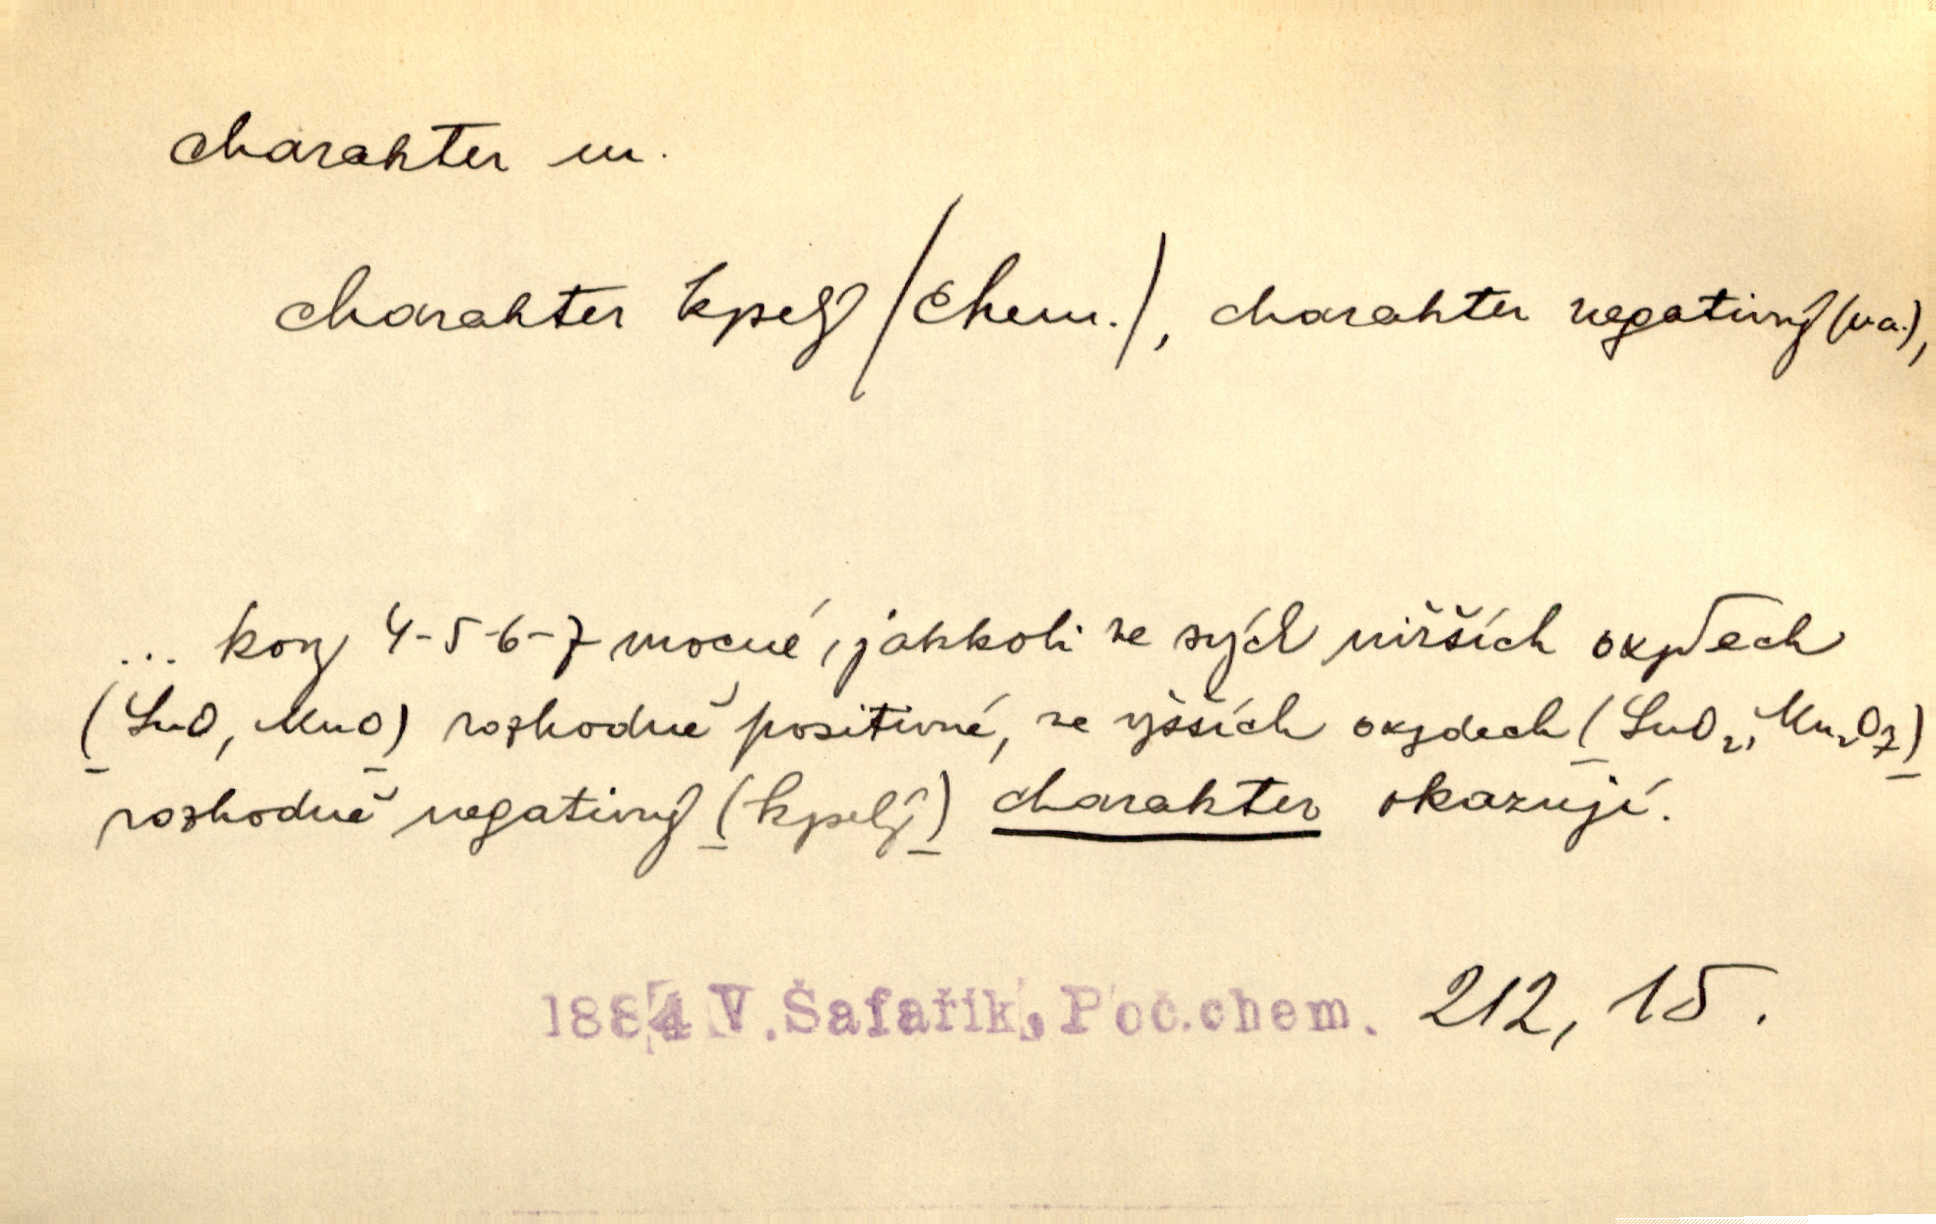 charakter m.
charakter kyselý /chem./, charakter negativný (v. a.),
... kovy 4-5-6-7 mocné, jakkoli ve svých nižších oxydech
(SnO, MnO) rozhodně positivné, ve vyšších oxydech (SnO₂, Mn₂O₇)
rozhodně negativný (kyselý) charakter okazují.
1884 V. Šafařík, Poč.chem. 212, 15.